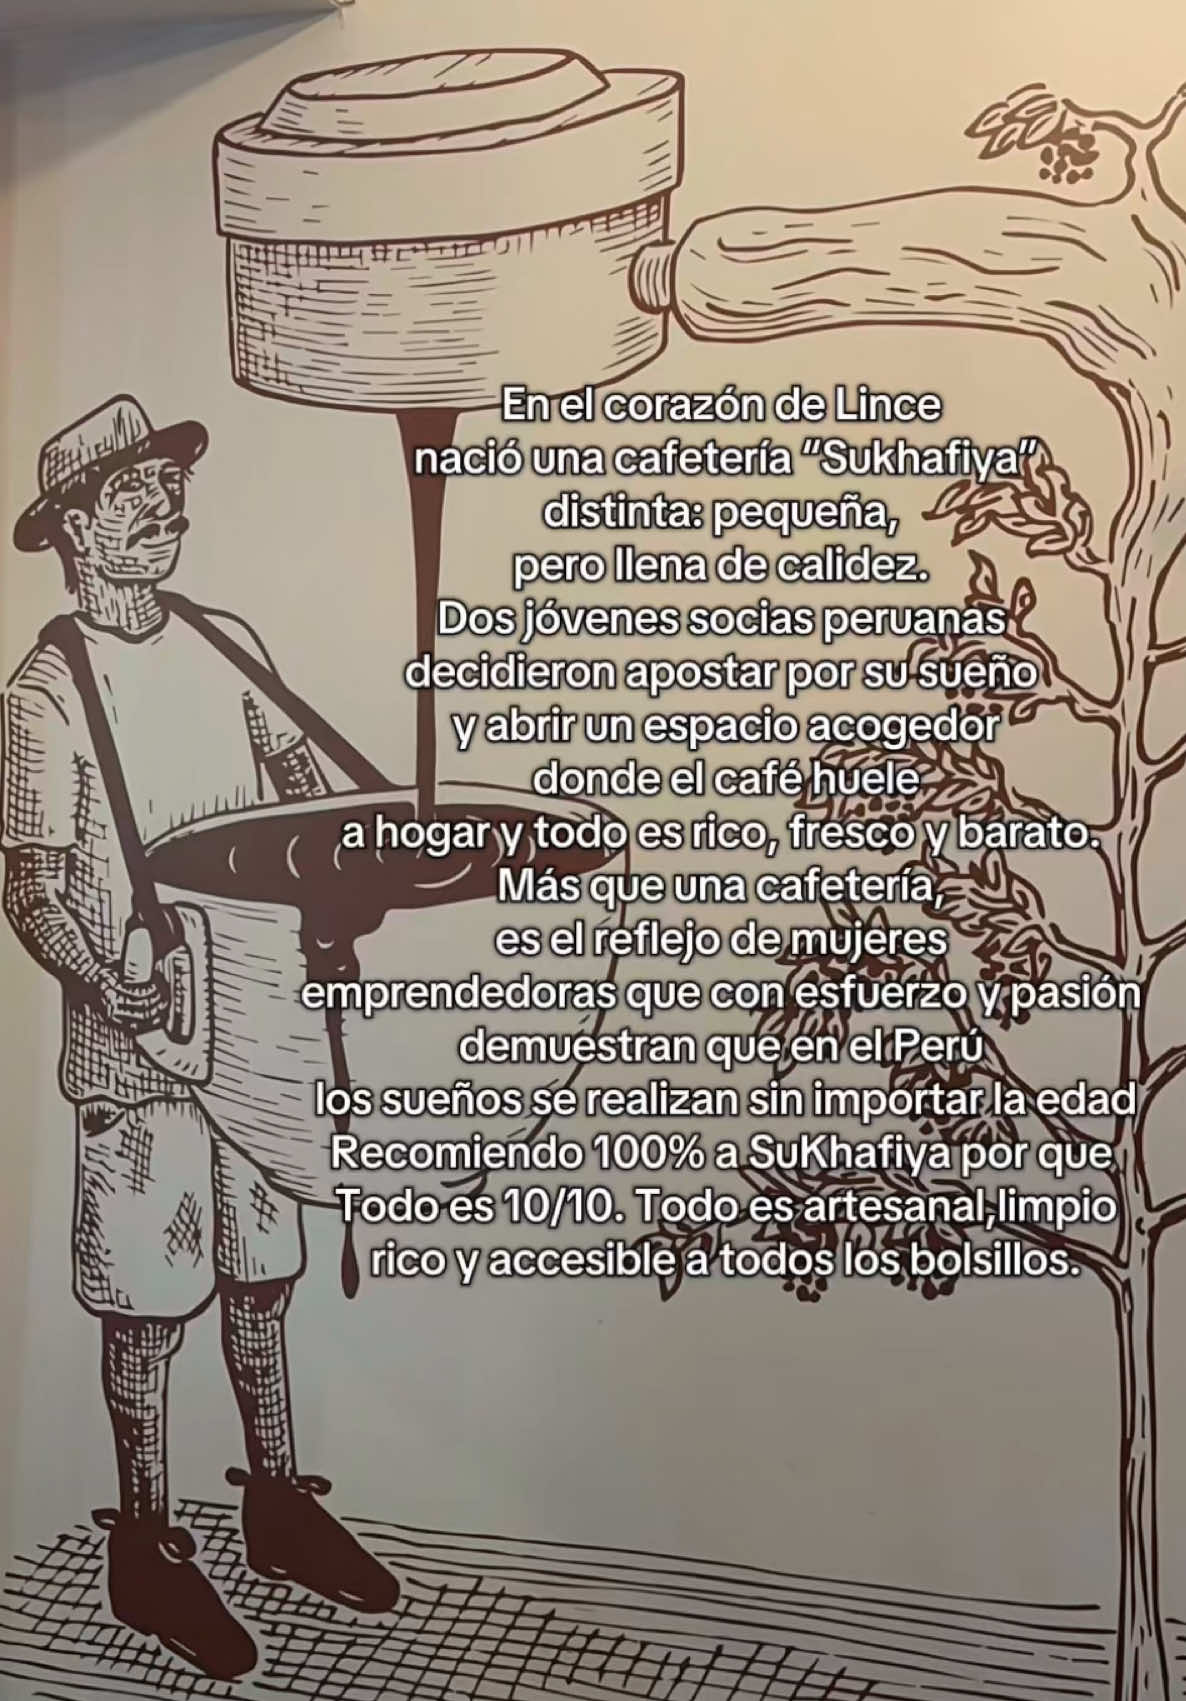 En el corazón de Lince
nació una cafetería “Sukhafiya”
distinta: pequeña,
pero llena de calidez.
Dos jóvenes socias peruanas
decidieron apostar por su sueño
y abrir un espacio acogedor
donde el café huele
a hogar y todo es rico, fresco y barato.
Más que una cafetería,
es el reflejo de mujeres
emprendedoras que con esfuerzo y pasión
demuestran que en el Perú
los sueños se realizan sin importar la edad
Recomiendo 100% a SuKhafiya por que
Todo es 10/10. Todo es artesanal,limpio
rico y accesible a todos los bolsillos.